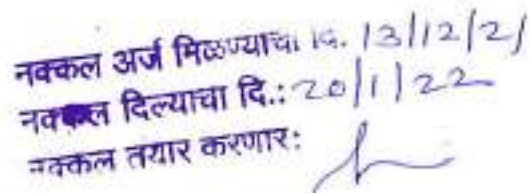 नक्कल अर्ज मिळण्याचा दि. 13/12/21
नक्कल दिल्याचा दि.: 20/1/22
नक्कल तयार करणार: